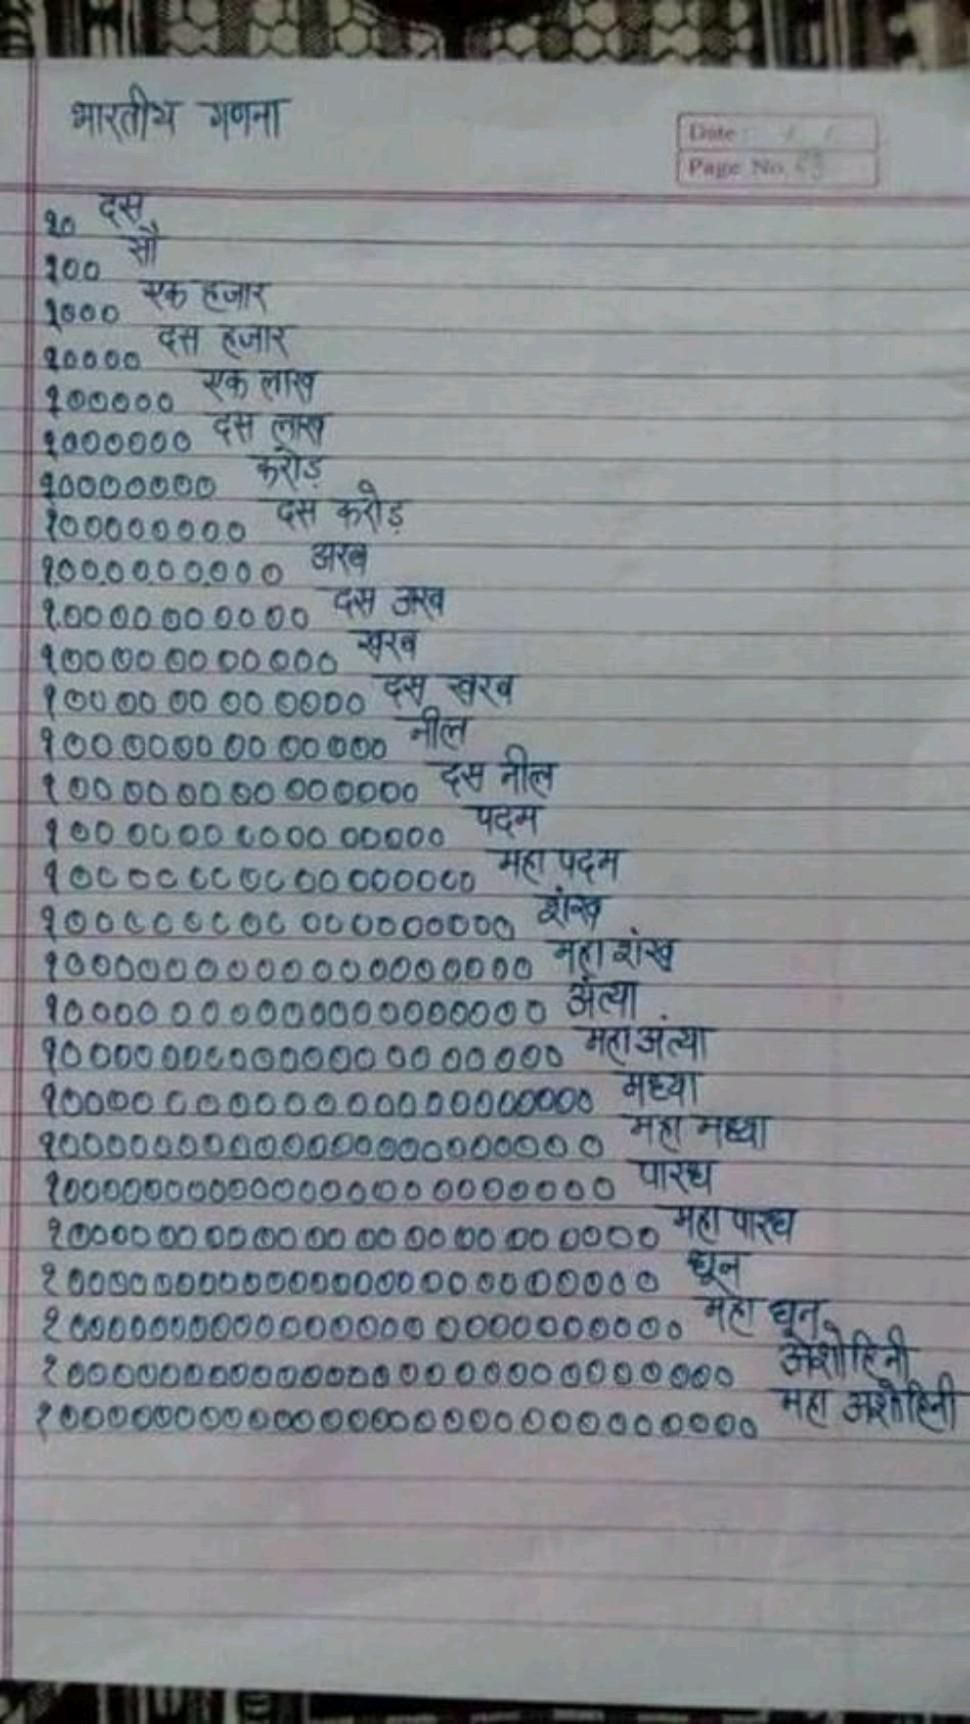 भारतीय गणना
Date :
Page No.
१० दस
१०० सौ
१००० एक हजार
१०००० दस हजार
१००००० एक लाख
१०००००० दस लाख
१००००००० करोड़
१०००००००० दस करोड़
१००००००००० अरब
१०००००००००० दस अरब
१००००००००००० खरब
१०००००००००००० दस खरब
१००००००००००००० नील
१०००००००००००००० दस नील
१००००००००००००००० पदम
१०००००००००००००००० महा पदम
१००००००००००००००००० शंख
१०००००००००००००००००० महा शंख
१००००००००००००००००००० अंत्या
१०००००००००००००००००००० महा अंत्या
१००००००००००००००००००००० मध्या
१०००००००००००००००००००००० महा मध्या
१००००००००००००००००००००००० पारध
१०००००००००००००००००००००००० महा पारध
१००००००००००००००००००००००००० धून
१०००००००००००००००००००००००००० महा धून
१००००००००००००००००००००००००००० अशोहिनी
१०००००००००००००००००००००००००००० महा अशोहिनी